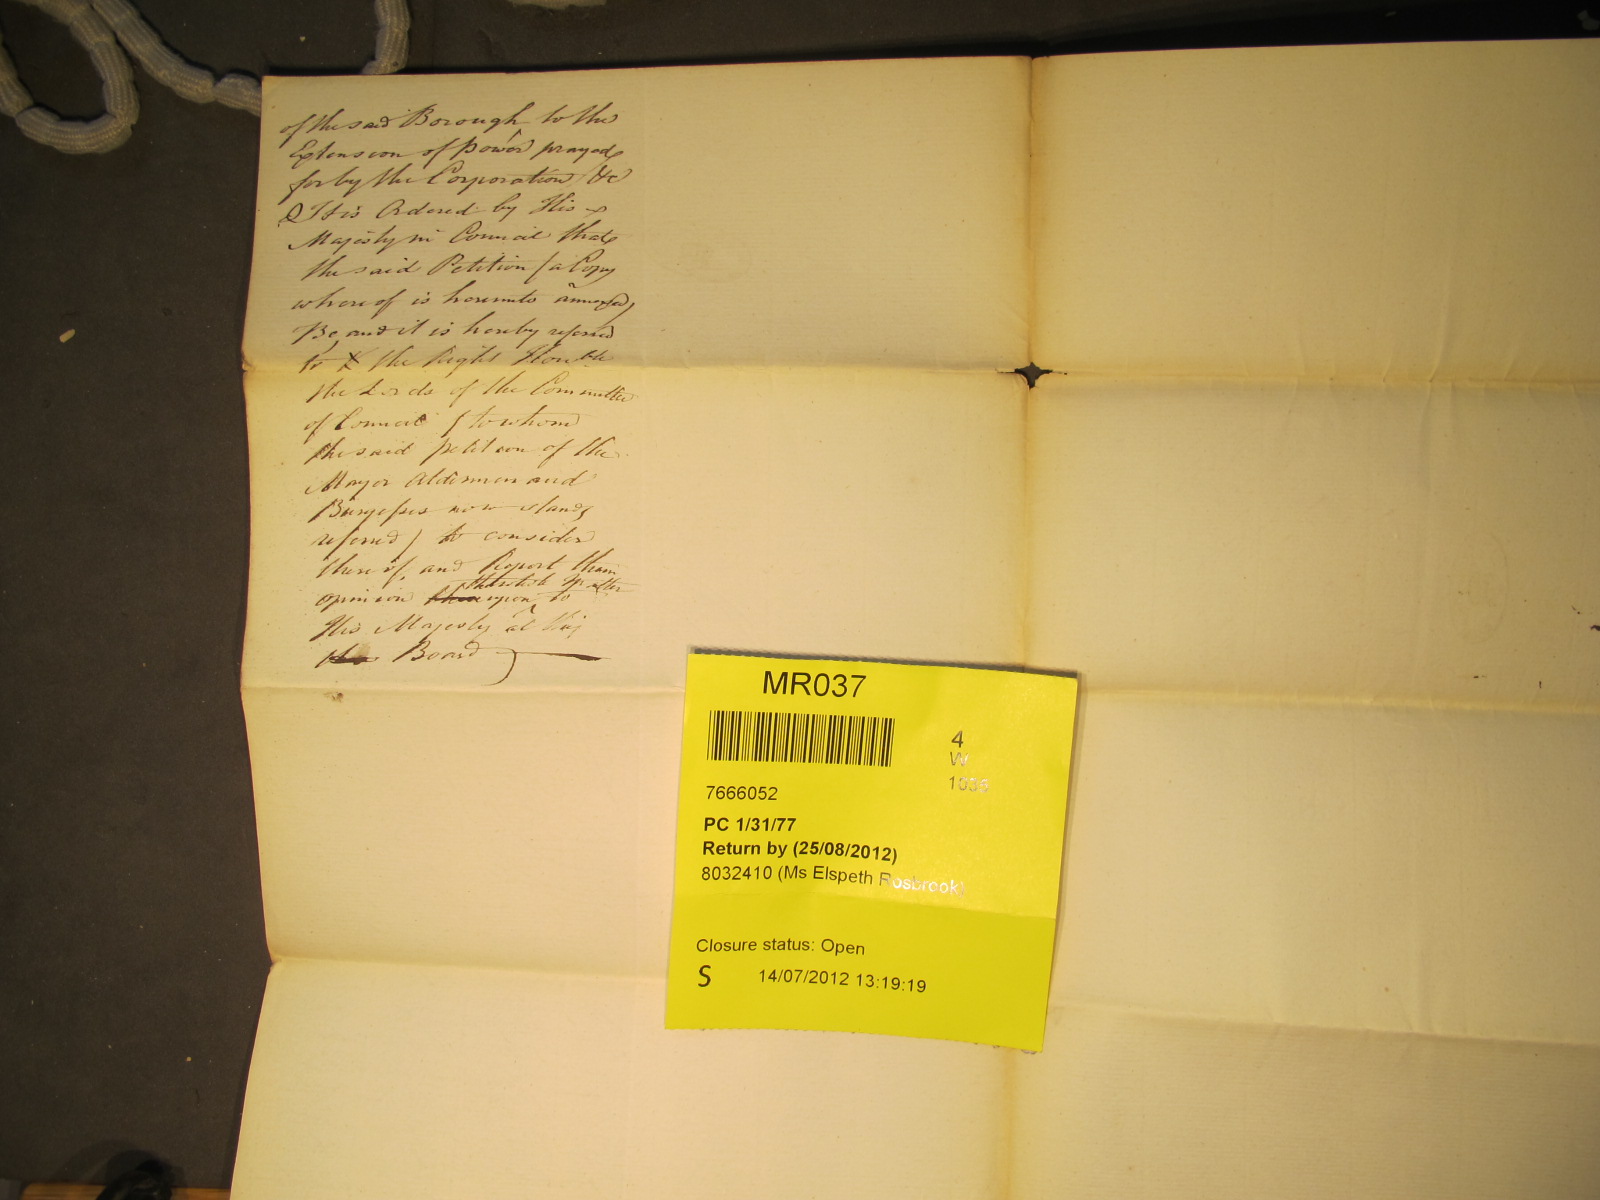 of the said Borough to the
Extension of Power prayed
for by the Corporation &c
It is Ordered by His
Majesty in Council that
the said Petition (a Copy
whereof is hereunto annexed)
Be, and it is hereby referred
to the Right Honble
the Lords of the Committee
of Council (to whom
the said petition of the
Mayor Aldermen and
Burgesses now stands
referred) to consider
thereof, and Report their
opinion upon to
His Majesty at this
Board
MR037
4
W
1035
7666052
PC 1/31/77
Return by (25/08/2012)
8032410 (Ms Elspeth Rosbrook)
Closure status: Open
S 14/07/2012 13:19:19